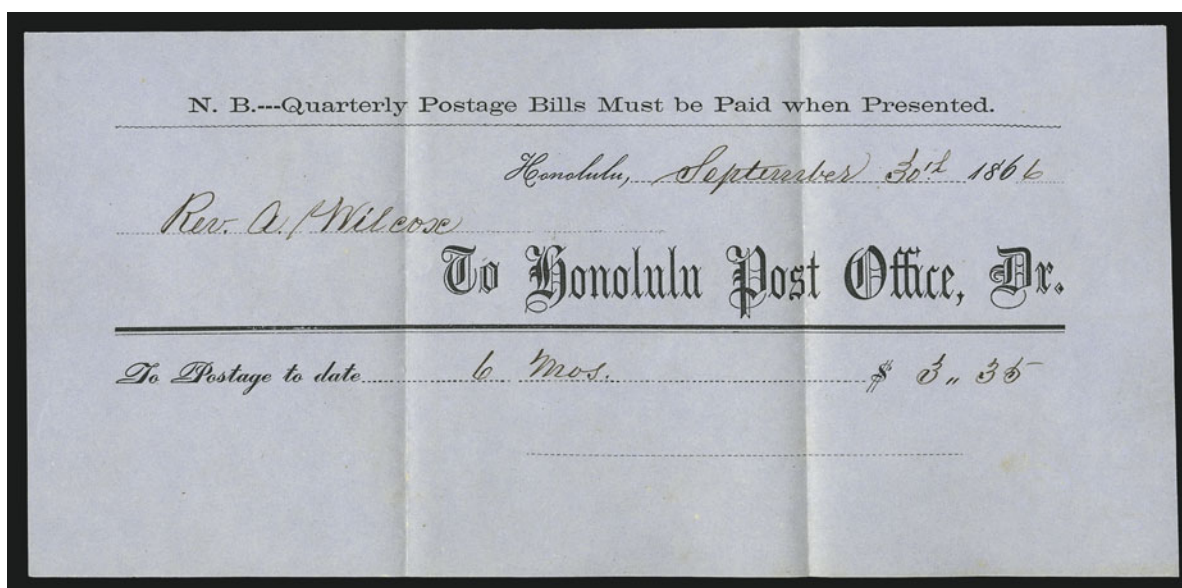 N. B.---Quarterly Postage Bills Must be Paid when Presented.
Honolulu, September 30th 1866
Rev. A. Wilcox
To Honolulu Post Office, Dr.
To Postage to date 6 Mos. $ 3,, 35